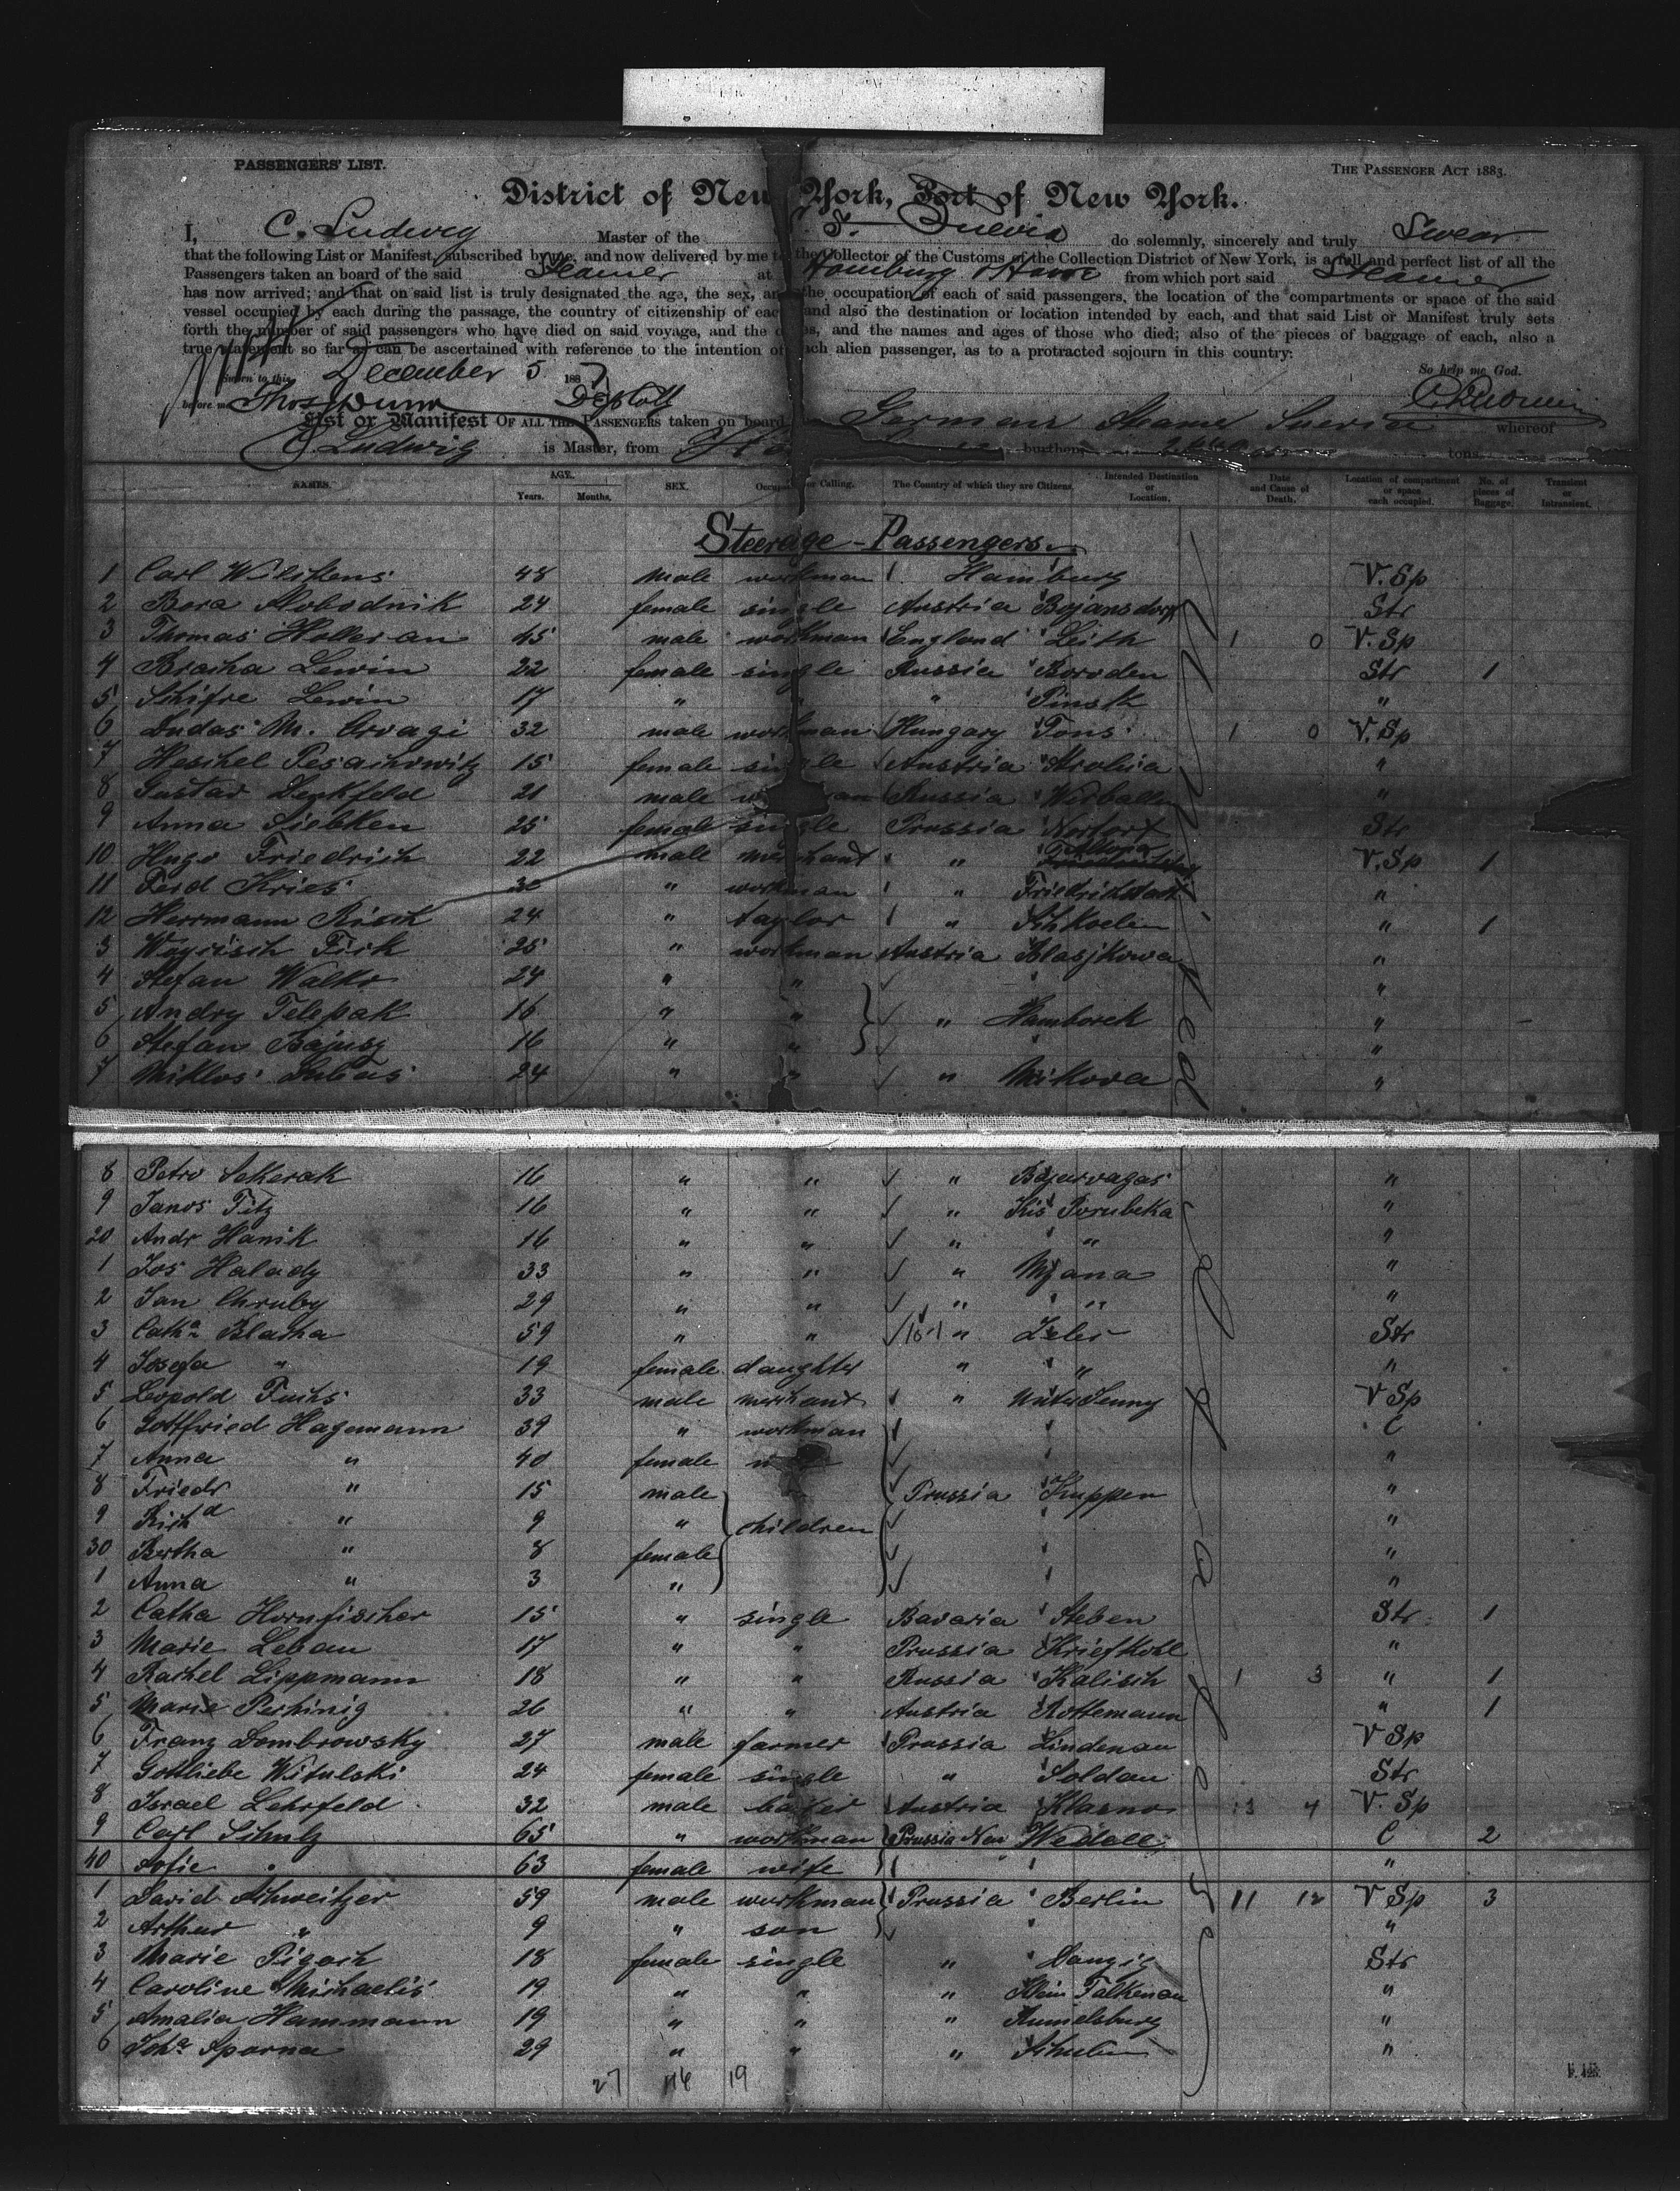 PASSENGERS' LIST.
THE PASSENGER ACT 1883.
District of New York, Port of New York.
I, C. Ludwig Master of the S. S. Suevia do solemnly, sincerely and truly Swear
that the following List or Manifest, subscribed by me, and now delivered by me to the Collector of the Customs of the Collection District of New York, is a full and perfect list of all the
Passengers taken an board of the said Steamer at Hamburg & Havre from which port said Steamer
has now arrived; and that on said list is truly designated the age, the sex, and the occupation of each of said passengers, the location of the compartments or space of the said
vessel occupied by each during the passage, the country of citizenship of each and also the destination or location intended by each, and that said List or Manifest truly sets
forth the number of said passengers who have died on said voyage, and the and the names and ages of those who died; also of the pieces of baggage of each, also a
true statement so far as can be ascertained with reference to the intention of each alien passenger, as to a protracted sojourn in this country:
So help me God.
Sworn to this December 5 1887
before me Thos Dunn
List or Manifest OF ALL THE PASSENGERS taken on board German Steamer Suevia whereof
C. Ludwig is Master, from burthen tons
NAMES. AGE. Years. Months. SEX. Occupation or Calling. The Country of which they are Citizens. Intended Destination or Location. Date and Cause of Death. Location of compartment or space each occupied. No. of pieces of Baggage. Transient or Intransient.
Steerage-Passengers.
1 Carl 48 male workman Hamburg V. Sp
2 Bera Slobodnik 24 female single Austria Bojansdorf Str
3 Thomas Holleran 45 male workman England Leith 1 0 V. Sp
4 Bracha Lewin 22 female single Russia Str 1
5 Schifre Lewin 17 " " " Pinsk "
6 Dudas M. 32 male workman Hungary Tons 1 0 V. Sp
7 Heschel Pesachowitz 15 female single Austria "
8 Gustav 21 male workman Russia "
9 Anna Siebken 25 female single Prussia Nortorf Str
10 Hugo Friedrich 22 male merchant " Altona V. Sp 1
11 Ferd Kries " workman " Friedrichstadt "
12 Herrmann 24 " taylor " "  1
3 25 " workman Austria "
4 Stefan Walko 24 " " "
5 Andry Telepak 16 " " " Hamborek "
6 Stefan Bajusz 16 " " "
7 Miklos 24 " " " Mikova "
8 Petro Sekerak 16 " " " "
9 Janos Fitz 16 " " " Kis Porubeka "
20 Andr Hanik 16 " " " " "
1 Jos Halady 33 " " " "
2 Jan Chruby 29 " " " " "
3 Catha Blaha 59 " " " Str
4 Josefa " 19 female daughter " " "
5 Leopold Fuchs 33 male merchant " V Sp
6 Gottfried Hagemann 39 " workman C
7 Anna " 40 female "
8 Friedr " 15 male Prussia "
9 Richd " 9 " children "
30 Bertha " 8 female "
1 Anna " 3 " "
2 Catha Hornfischer 15 " single Bavaria Steben Str 1
3 Marie Lebau 17 " " Prussia Kriefkohl "
4 Rachel Lippmann 18 " " Russia Kalisch 1 3 " 1
5 Marie 26 " " Austria Rottemann " 1
6 Franz Dombrowsky 27 male farmer Prussia Lindenau V Sp
7 Gottliebe Witulski 24 female single " Soldau Str
8 Israel Lehrfeld 32 male Austria 13 4 V. Sp
9 Carl Schulz 65 " workman Prussia Neu Wedell C 2
40 Sofie " 63 female wife "
1 David Schweitzer 59 male workman Prussia Berlin 11 V Sp 3
2 Arthur " 9 " son "
3 Marie 18 female single " Danzig Str
4 Caroline Michaelis 19 " " " Klein Falkenau "
5 Amalia Hammann 19 " " " Rumelsburg "
6 Joha Sporna 29 " " " "
27 19